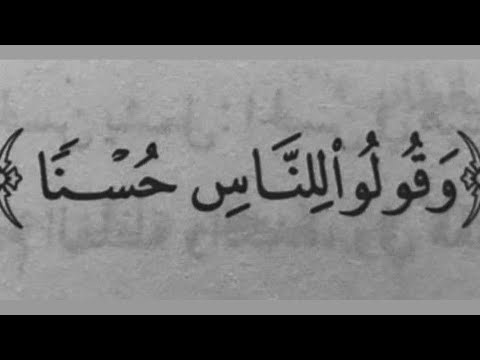 ﴿وَقُولُوا۟ لِلنَّاسِ حُسْنًا﴾